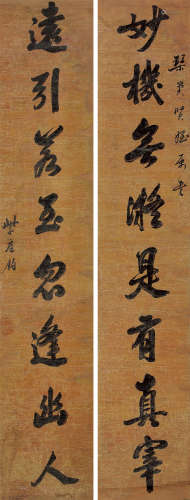 妙機其微是有真宰
遠引若至忽逢幽人